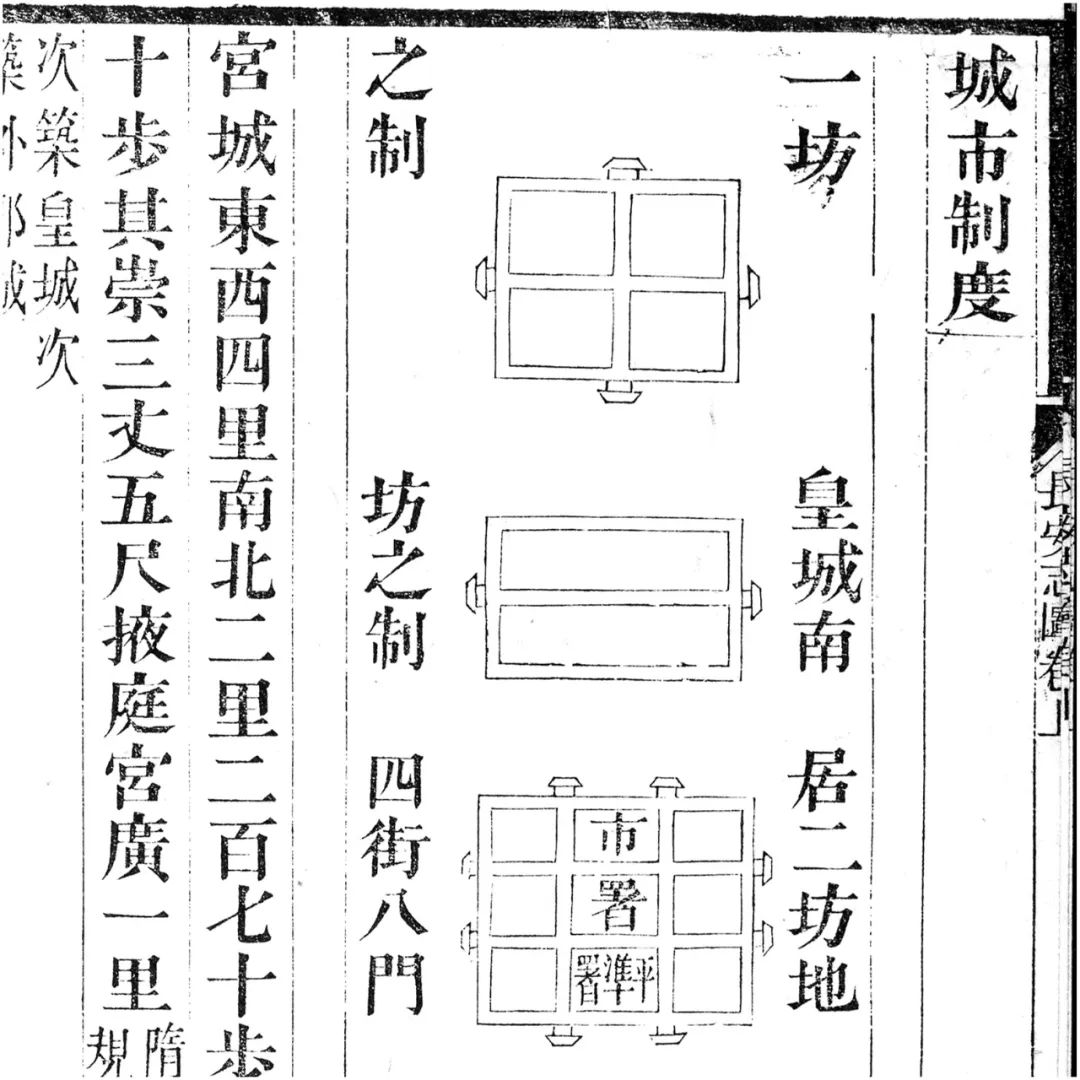 長安志圖卷上
城市制度
一坊
之制
皇城南
坊之制
居二坊地
四街八門
市
署
平準署
宮城東西四里南北二里二百七十步
十步其崇三丈五尺掖庭宮廣一里
隋
規
次築皇城次
築外郭城